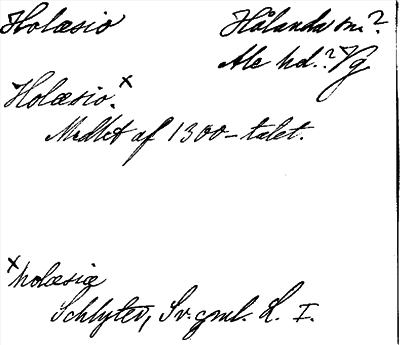 Holæsio Hålanda sn.?
Ale hd.? Vg
Holæsio.x
Midtet af 1300-talet.
x holæsiæ
Schlyter, Sv. gml. L. I.